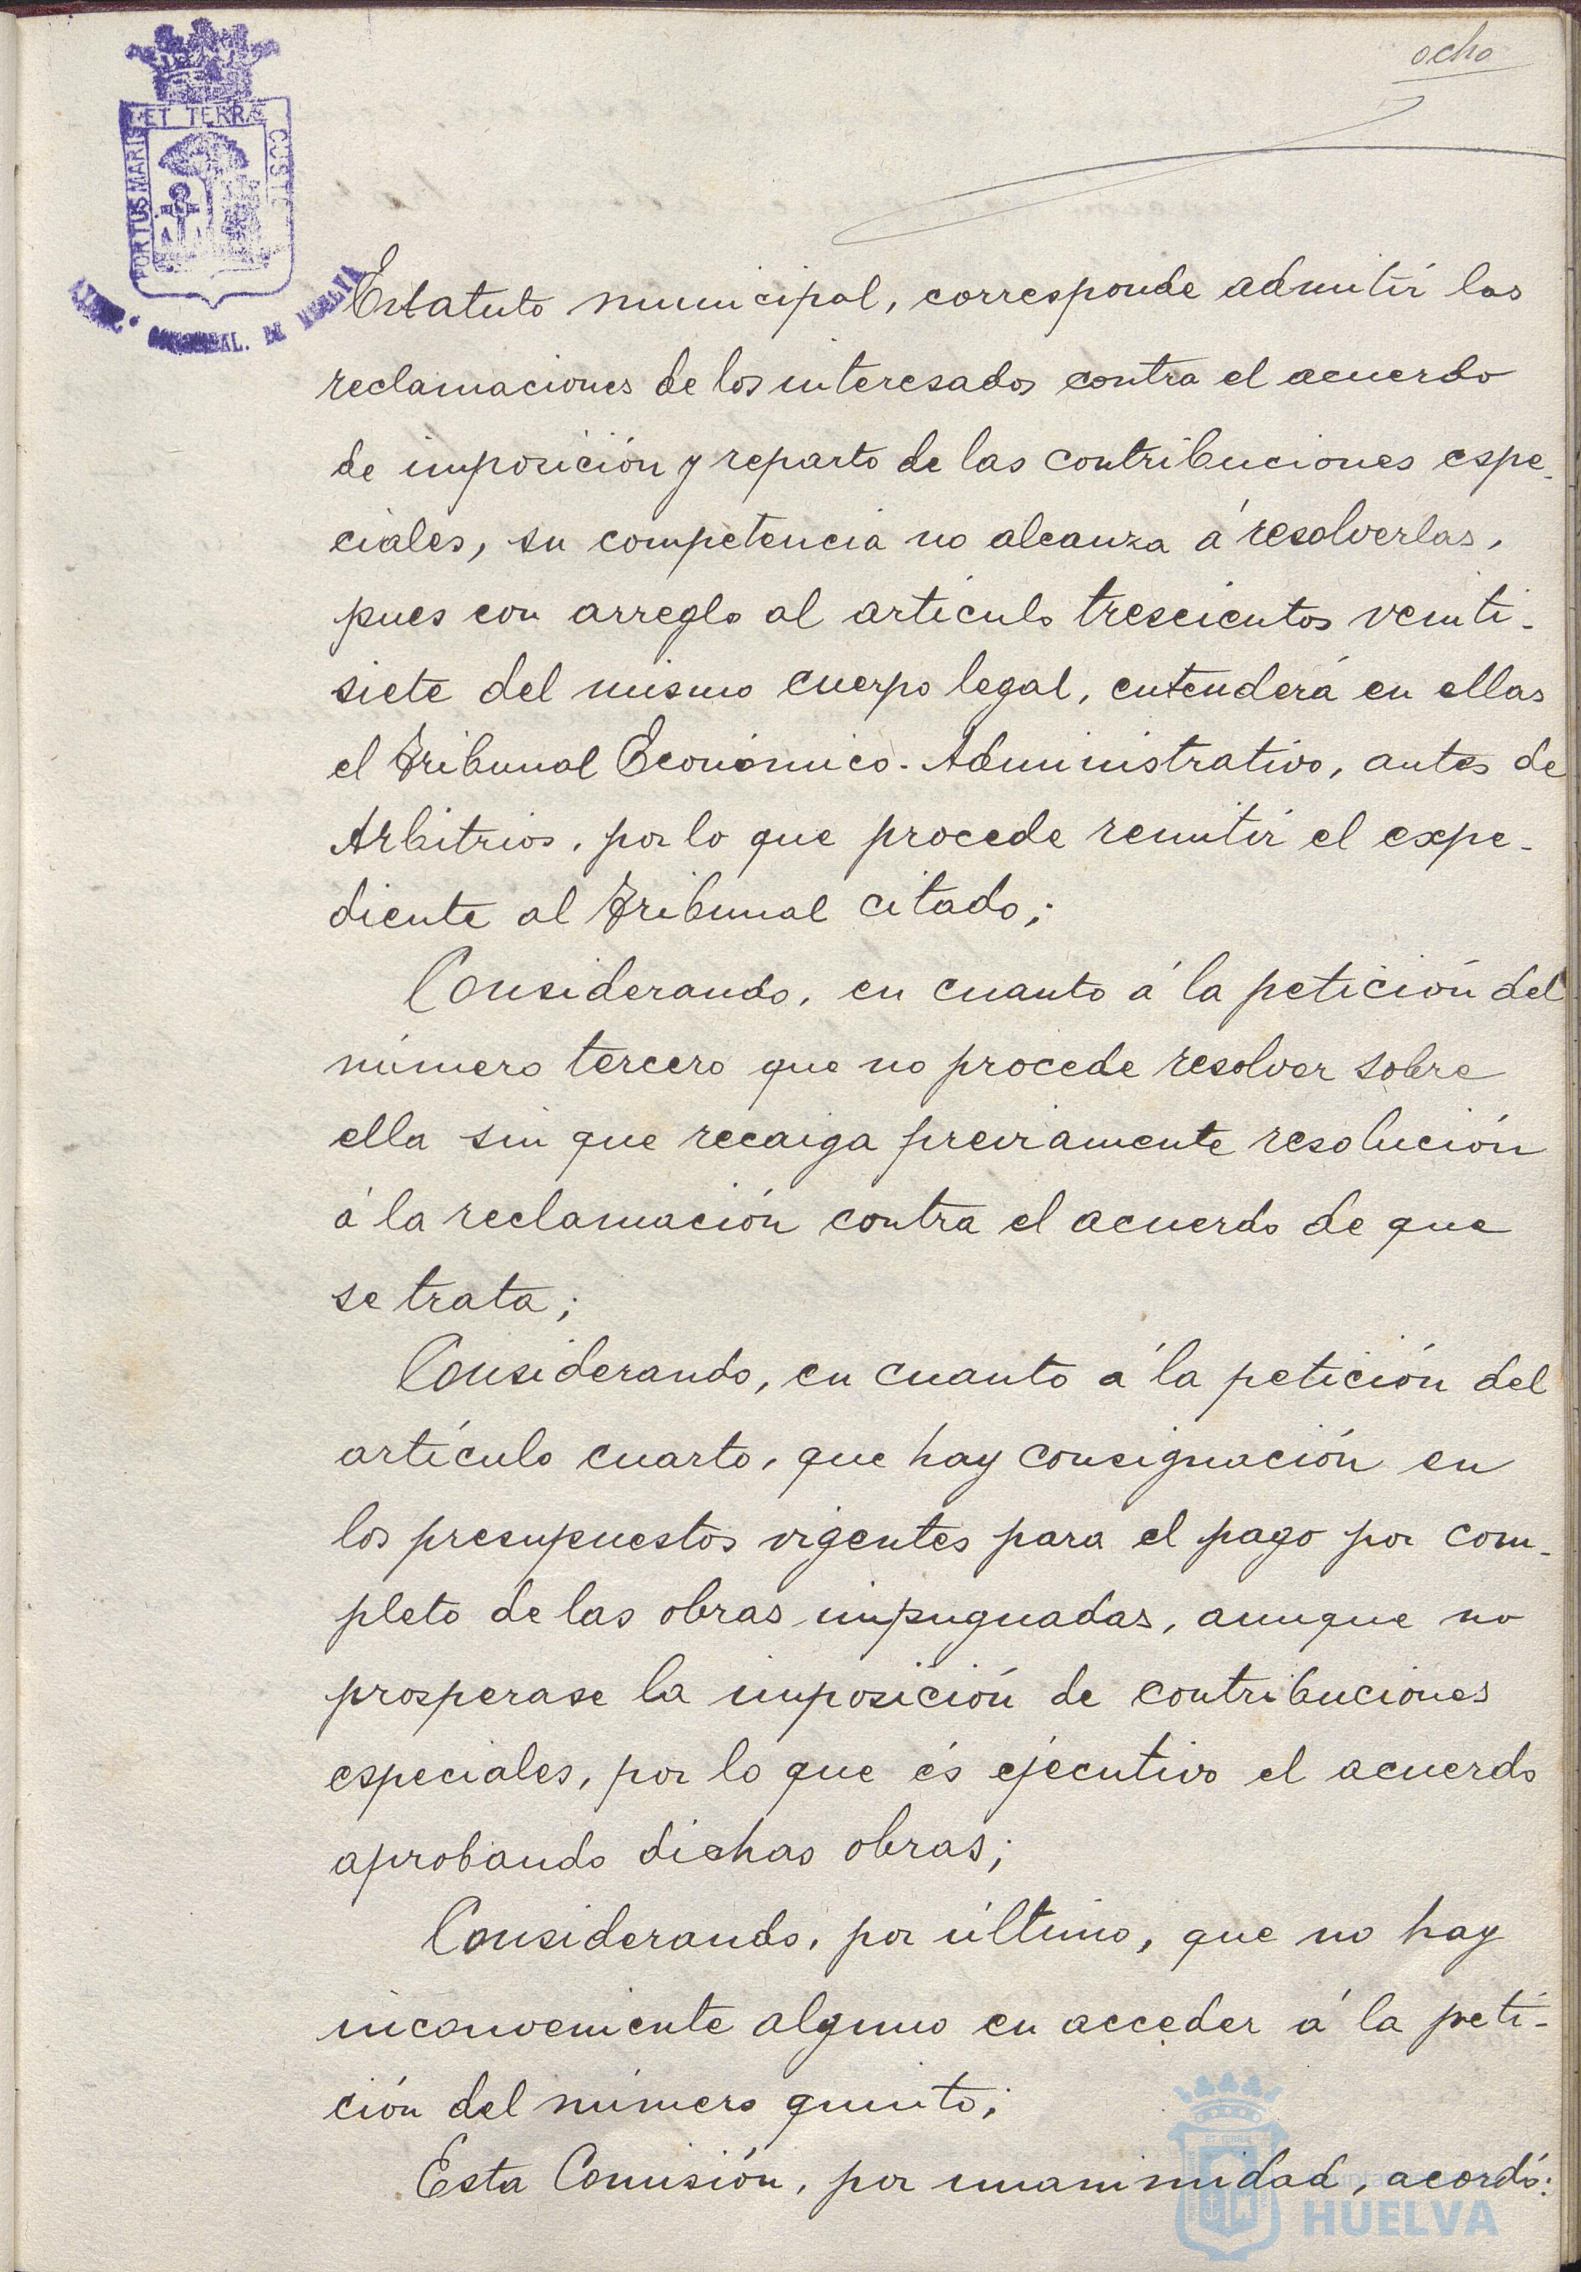 ocho
PORTUS MARIS ET TERRÆ CUSTO
DE HUELVA
Estatuto municipal, corresponde admitir las
reclamaciones de los interesados contra el acuerdo
de imposición y reparto de las contribuciones espe-
ciales, su competencia no alcanza á resolverlas,
pues con arreglo al artículo trescientos veinti-
siete del mismo cuerpo legal, entenderá en ellas
el Tribunal Económico-Administrativo, antes de
Arbitrios, por lo que procede remitir el expe-
diente al Tribunal citado;
Considerando, en cuanto á la petición del
número tercero que no procede resolver sobre
ella sin que recaiga previamente resolución
á la reclamación contra el acuerdo de que
se trata;
Considerando, en cuanto á la petición del
artículo cuarto, que hay consignación en
los presupuestos vigentes para el pago por com-
pleto de las obras impugnadas, aunque no
prosperase la imposición de contribuciones
especiales, por lo que és ejecutivo el acuerdo
aprobando dichas obras;
Considerando, por último, que no hay
inconveniente alguno en acceder á la peti-
ción del número quinto;
Esta Comisión, por unanimidad, acordó:
HUELVA